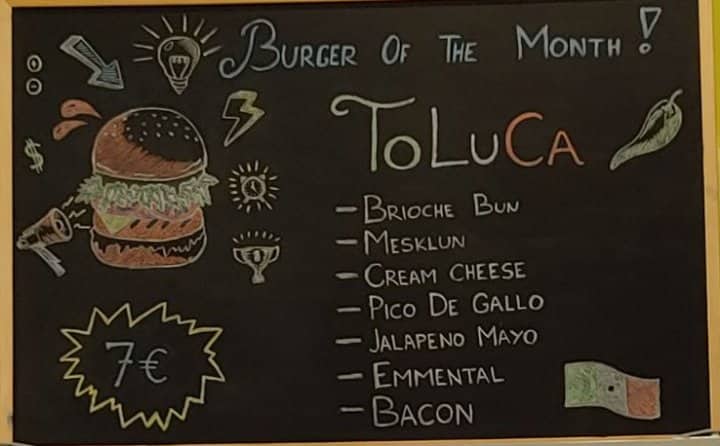 BURGER OF THE MONTH!
TOLUCA
- BRIOCHE BUN
- MESKLUN
- CREAM CHEESE
- PICO DE GALLO
- JALAPENO MAYO
- EMMENTAL
- BACON
$
1
7€